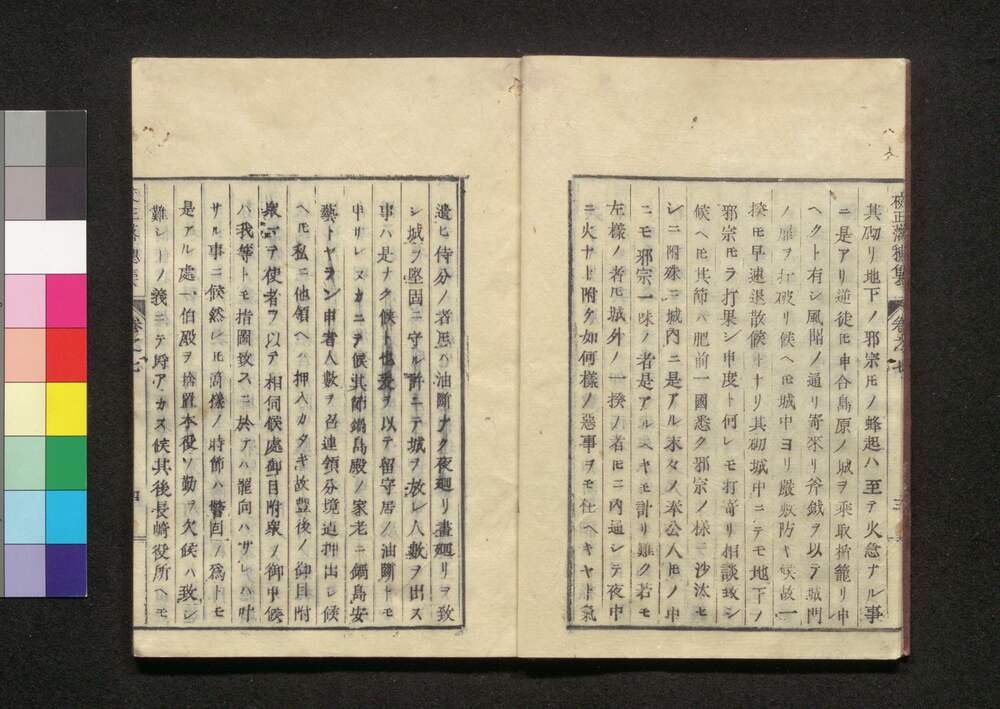 校正落穂集 卷之七 三
其砌リ地下ノ邪宗𪜈ノ蜂起ハ至テ火急ナル事
ニ是アリ逆徒𪜈申合島原ノ城ヲ乗取楯籠リ申
ヘクト有シ風聞ノ通リ寄来リ斧鉞ヲ以テ城門
ノ扉ヲ打破リ候ヘ𪜈城中ヨリ嚴敷防キ候故一
揆𪜈早速退散候トナリ其砌城中ニテモ地下ノ
邪宗𪜈ヲ打果シ申度ト何レモ打寄リ相談致シ
候ヘ𪜈其節ハ肥前一國悉ク邪宗ノ様ニ沙汰セ
シニ附殊ニ城內ニ是アル末々ノ奉公人𪜈ノ中
ニモ邪宗一味ノ者是アルヘキモ計リ難ク若モ
左樣ノ者𪜈城外ノ一揆ノ者𪜈ニ內通シテ夜中
ニ火ナト附ケ如何樣ノ惡事ヲモ仕ヘキヤト氣
遣ヒ侍分ノ者𪜈ハ油斷ナク夜廻リ晝廻リヲ致
シ城ヲ堅固ニ守ル計ニテ城ヲ放レ人數ヲ出ス
事ハ是ナク候ト也爰ヲ以テ留守居ノ油斷トモ
申サレヌカニテ候其節鍋島殿ノ家老ニ鍋島安
藝トヤラン申者人數ヲ召連領分境迠押出シ候
ヘ𪜈私ニ他領ヘハ押入カタキ故豊後ノ御目附
衆マテ使者ヲ以テ相伺候處御目附衆ノ御申候
ハ我等トモ指圖致スニ於テハ籠向ハサレハ叶
サル事ニ候然レ𪜈箇樣ノ時節ハ警固ノ爲トモ
是アル處ヽ伯殿ヲ捨置本役ヲ勤ヲ欠候ハ致シ
難シトノ義ニテ埒アカス候其後長崎役所ヘモ
卷之七 四